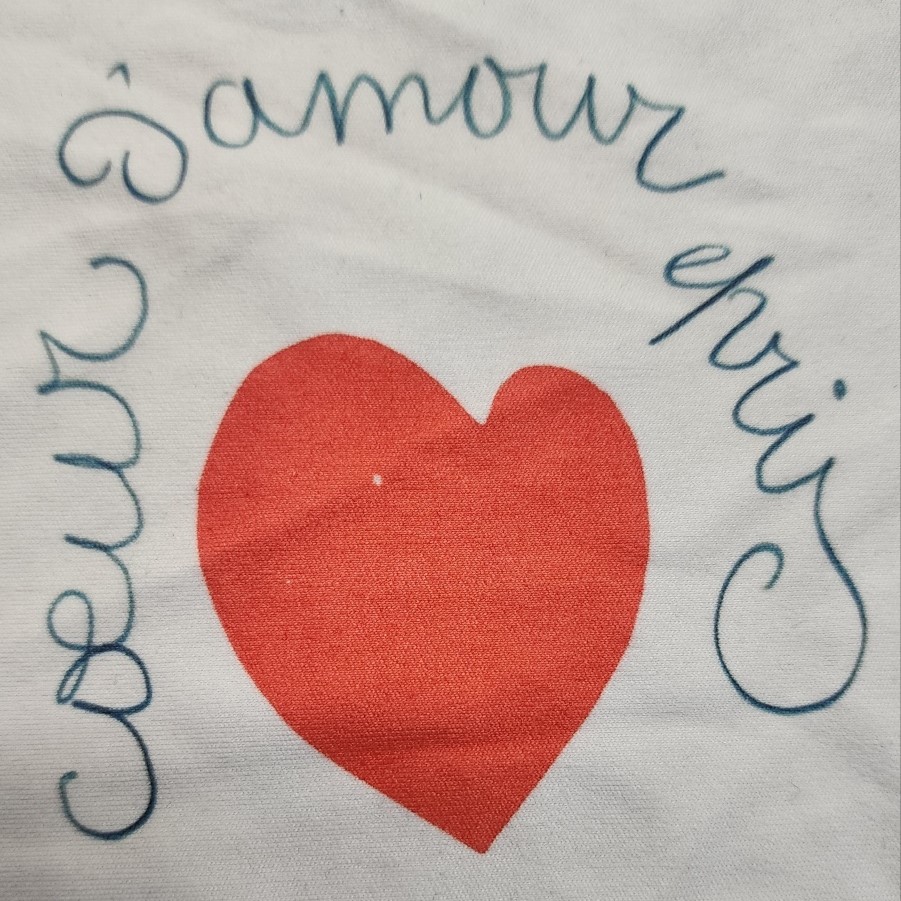 coeur d'amour epris